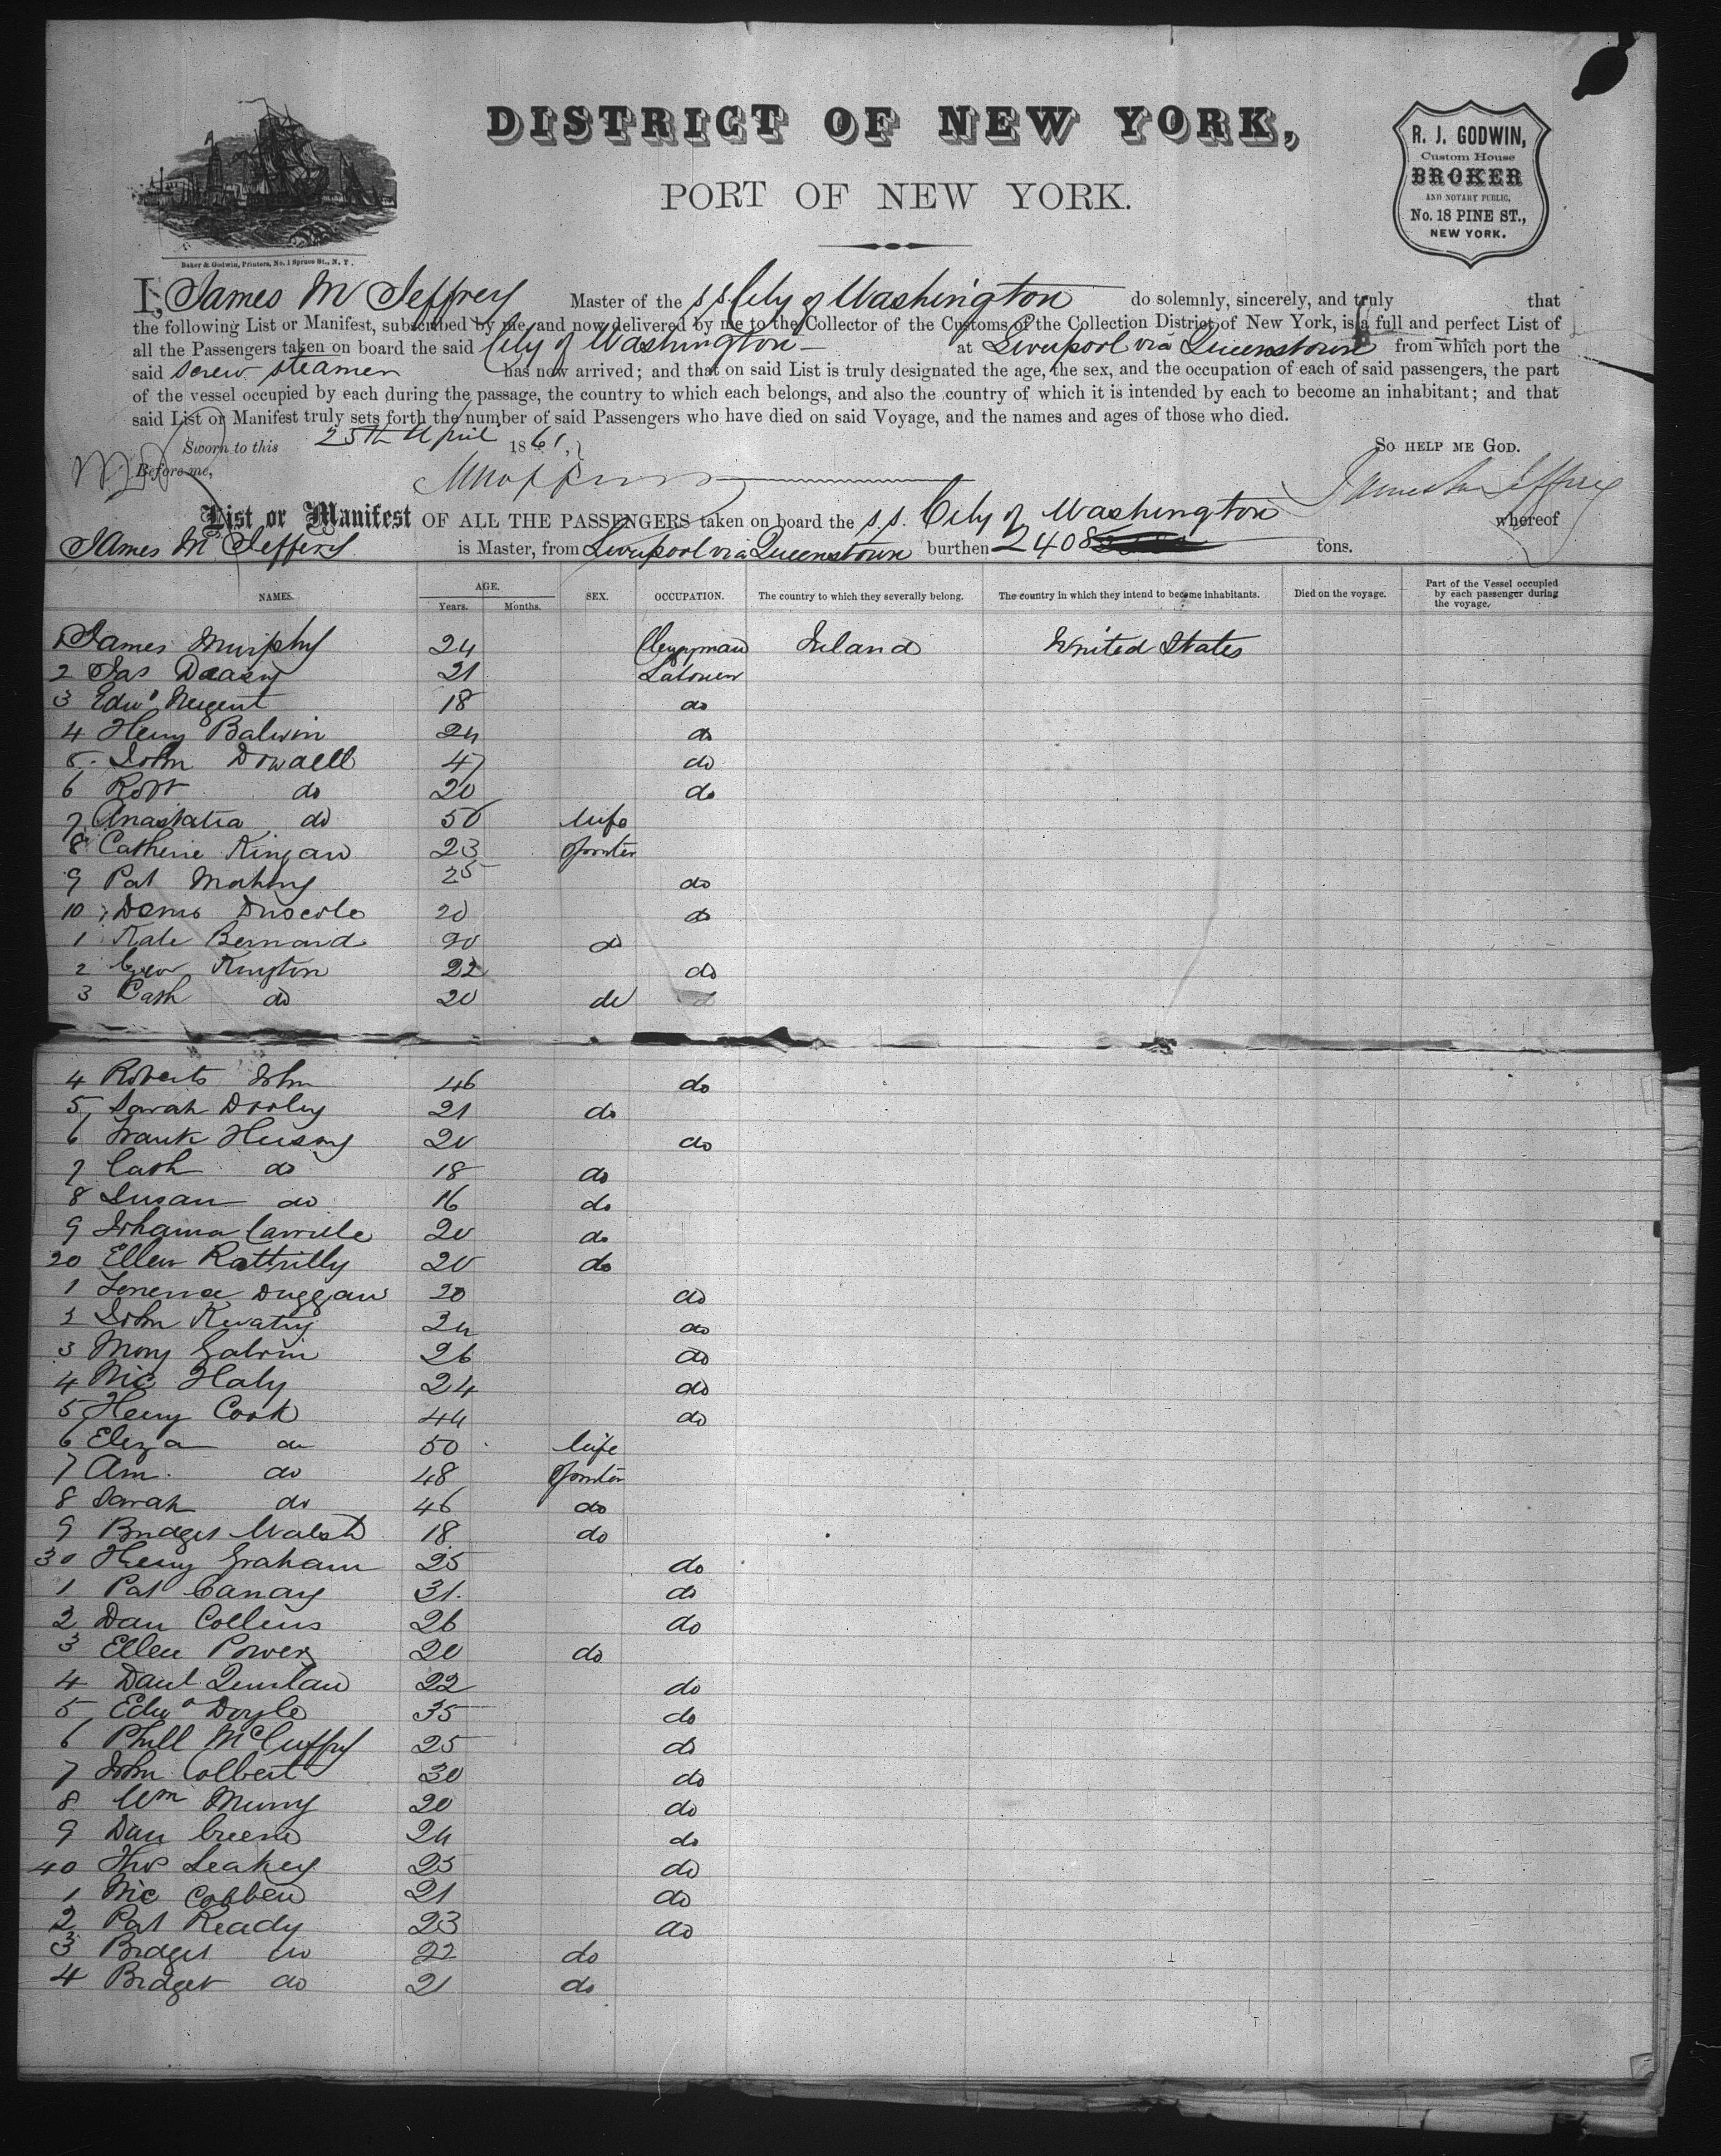 DISTRICT OF NEW YORK,
PORT OF NEW YORK.
R. J. GODWIN,
Custom House
BROKER
AND NOTARY PUBLIC,
No. 18 PINE ST.,
NEW YORK.
Baker & Godwin, Printers, No. 1 Spruce St., N. Y.
I, James M Jeffrey Master of the s s. City of Washington do solemnly, sincerely, and truly that
the following List or Manifest, subscribed by me, and now delivered by me to the Collector of the Customs of the Collection District of New York, is a full and perfect List of
all the Passengers taken on board the said City of Washington at Liverpool via Queenstown from which port the
said screw steamer has now arrived; and that on said List is truly designated the age, the sex, and the occupation of each of said passengers, the part
of the vessel occupied by each during the passage, the country to which each belongs, and also the country of which it is intended by each to become an inhabitant; and that
said List or Manifest truly sets forth the number of said Passengers who have died on said Voyage, and the names and ages of those who died.
Sworn to this 25th April 1861, SO HELP ME GOD.
Before me,
List or Manifest OF ALL THE PASSENGERS taken on board the s.s. City of Washington whereof
James Mc Jeffery is Master, from Liverpool via Queenstown burthen 2408 tons.
NAMES. AGE. Years. Months. SEX. OCCUPATION. The country to which they severally belong. The country in which they intend to become inhabitants. Died on the voyage. Part of the Vessel occupied by each passenger during the voyage.
1 James Murphy 24 Clergyman Ireland United States
2 Jas Deasy 21 Labourer
3 Edwd Nugent 18 do
4 Henry Balwin 24 do
5 John Dowall 47 do
6 Robt do 20 do
7 Anastatia do 50 Wife
8 Catherine 23 Spinster
9 Pat 25 do
10 Denis Driscole 20 do
1 Kate Bernard 20 do
2 Geo Kington 22 do
3 Cath do 20 do
4 Roberts John 46 do
5 Sarah Dooley 21 do
6 Frank 20 do
7 Cath do 18 do
8 Susan do 16 do
9 Johanna 20 do
20 Ellen 20 do
1 Duggan 20 do
2 John 24 do
3 Galvin 26 do
4 Mic Haly 24 do
5 Henry Cook 44 do
6 Eliza do 50 Wife
7 Ann do 48 Spinster
8 Sarah do 46 do
9 Bridget Walsh 18 do
30 Henry Graham 25 do
1 Pat Canary 31 do
2 Dan Collins 26 do
3 Ellen Power 20 do
4 Danl Quinlan 22 do
5 Edwd Doyle 35 do
6 Phill 25 do
7 John Colbert 30 do
8 Wm Murry 20 do
9 Dan Greene 24 do
40 Thos Leahey 25 do
1 Mic 21 do
2 Pat Ready 23 do
3 Bridget do 22 do
4 Bridget do 21 do